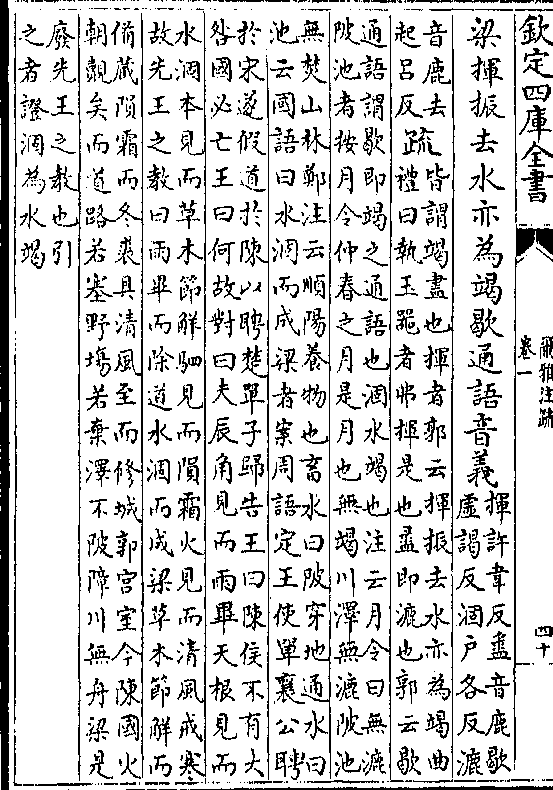 欽定四庫全書
爾雅注疏
卷一
四十
梁揮振去水亦為竭歇通語音義揮許韋反盝音鹿歇
虚謁反涸户各反漉
音鹿去
起吕反疏皆謂竭盡也揮者郭云揮振去水亦為竭曲
禮曰執玉器者弗揮是也盝即漉也郭云歇
通語謂歇即竭之通語也涸水竭也注云月令曰無漉
陂池者按月令仲春之月是月也無竭川澤無漉陂池
無焚山林鄭注云順陽養物也畜水曰陂穿地通水曰
池云國語曰水涸而成梁者案周語定王使單襄公聘
於宋遂假道於陳以聘楚單子歸告王曰陳侯不有大
咎國必亡王曰何故對曰夫辰角見而雨畢天根見而
水涸本見而草木節解駟見而隕霜火見而清風戒寒
故先王之教曰雨畢而除道水涸而成梁草木節解而
備藏隕霜而冬裘具清風至而修城郭宫室今陳國火
朝覿矣而道路若塞野塲若棄澤不陂障川無舟梁是
廢先王之教也引
之者證涸為水竭